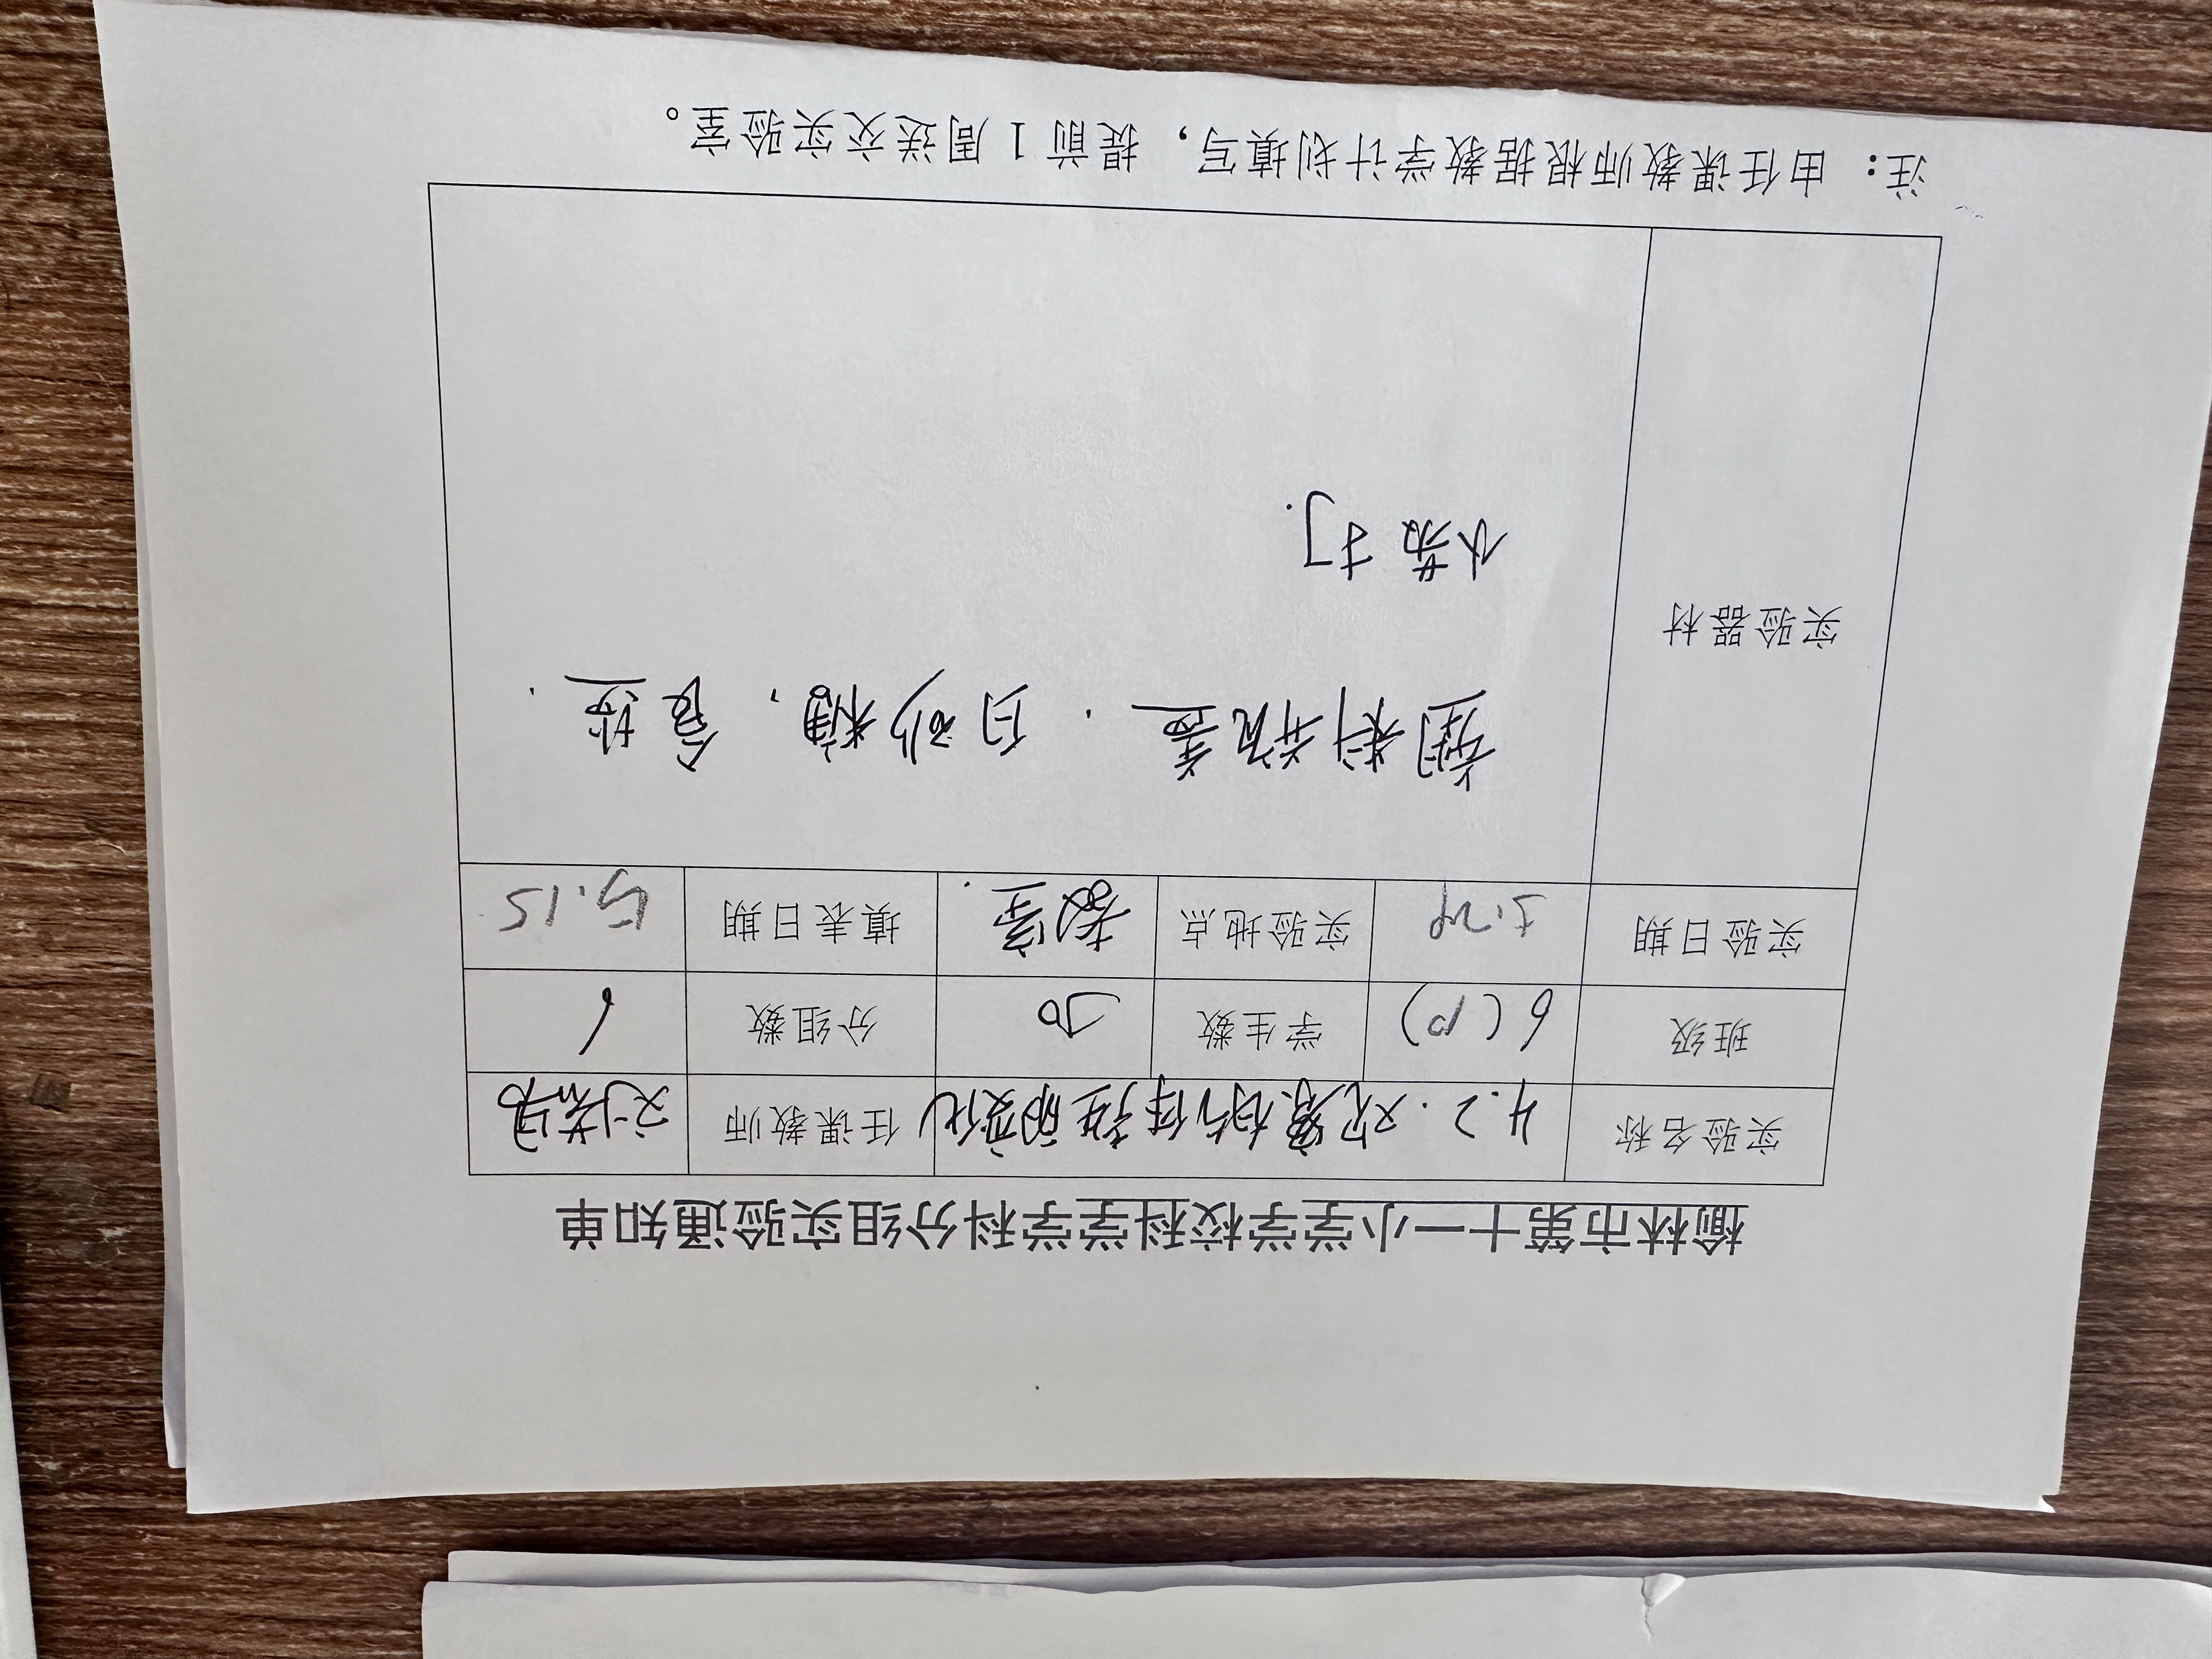 榆林市第十一小学学校科学学科分组实验通知单
实验名称 4.2.观察物体种的变化 任课教师
班级 6(10) 学生数 50 分组数 6
实验日期 实验地点 教室. 填表日期 5.15
实验器材
塑料瓶盖. 白砂糖, 食盐.
小苏打.
注: 由任课教师根据教学计划填写, 提前1周送交实验室。